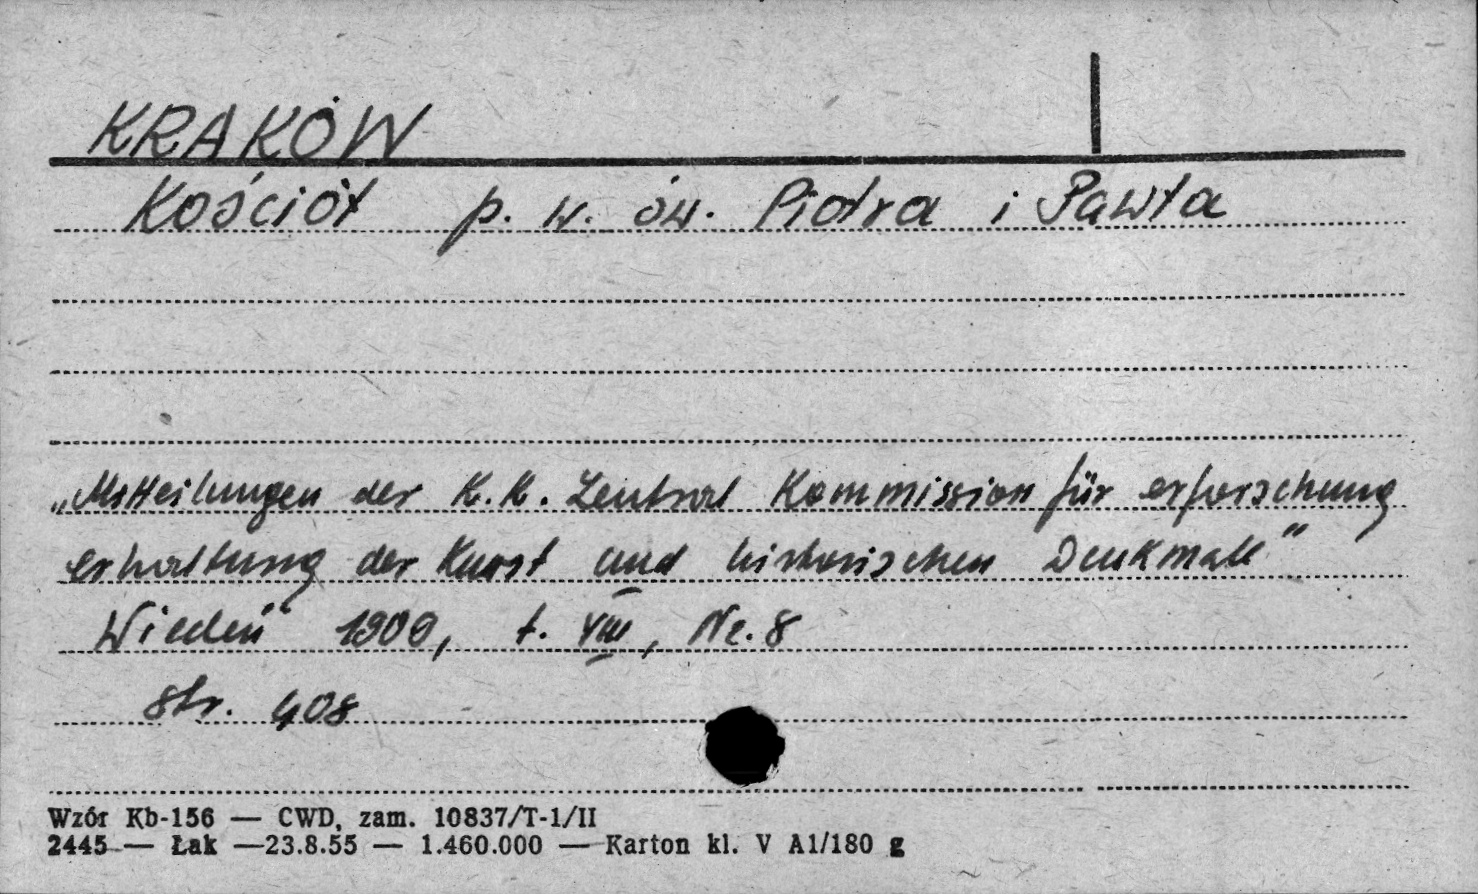 KRAKÓW
Kościół p. w. św. Piotra i Pawła
„Mitteilungen der K. K. Zentral Kommission für erforschung
erhaltung der Kunst und historischen Denkmale"
Wiedeń 1909, t. VIII, Nr. 8
str. 408
Wzór Kb-156 — CWD, zam. 10837/T-1/II
2445 — Łak — 23.8.55 — 1.460.000 — Karton kl. V A1/180 g